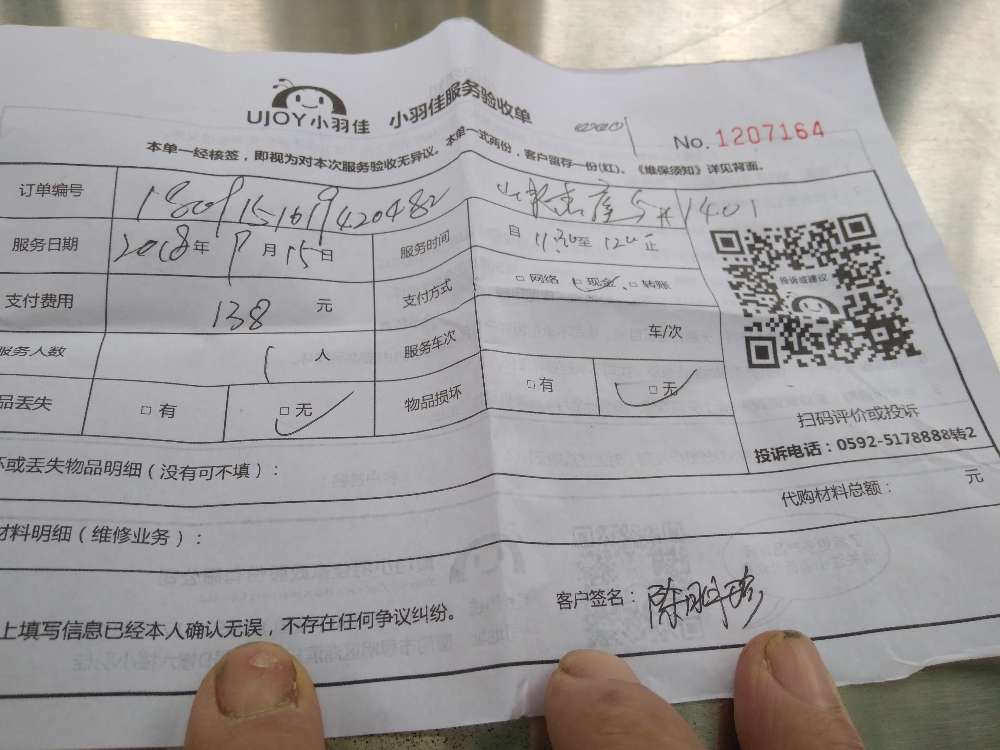 UJOY小羽佳 小羽佳服务验收单
No. 1207164
本单一经核签，即视为对本次服务验收无异议。本单一式两份，客户留存一份(红)。《维保须知》详见背面。
订单编号 180915161942048 1401
服务日期 2018年9月15日 服务时间 自 11:30至 12:00止
支付费用 138 元 支付方式 □网络 □现金 □转账
服务人数 1 人 服务车次 车/次
品丢失 □有 □无 物品损坏 □有 □无
投诉或建议
扫码评价或投诉
投诉电话：0592-5178888转2
坏或丢失物品明细（没有可不填）：
代购材料总额： 元
材料明细（维修业务）：
上填写信息已经本人确认无误，不存在任何争议纠纷。 客户签名：